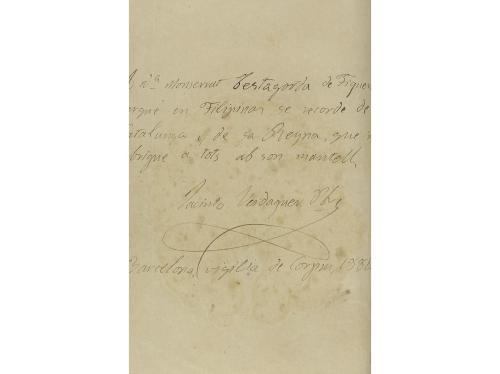 A na Monserrat Testagorda de Figuer
perqué en Filipinas se recorde de
Catalunya y de sa Reyna, que n
abrigue a tots ab son mantell.
Jacinto Verdaguer Pbre
Barcelona, vigilia de Corpus, 188